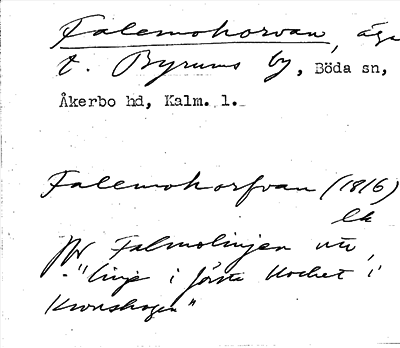 Falemohorvan, äga
t. Byrums by, Böda sn,
Åkerbo hd, Kalm. l.
Falemohorfvan (1816)
lk
jfr Falmolinjen utu,
"linje i förste Kochet i
Kronskogen"